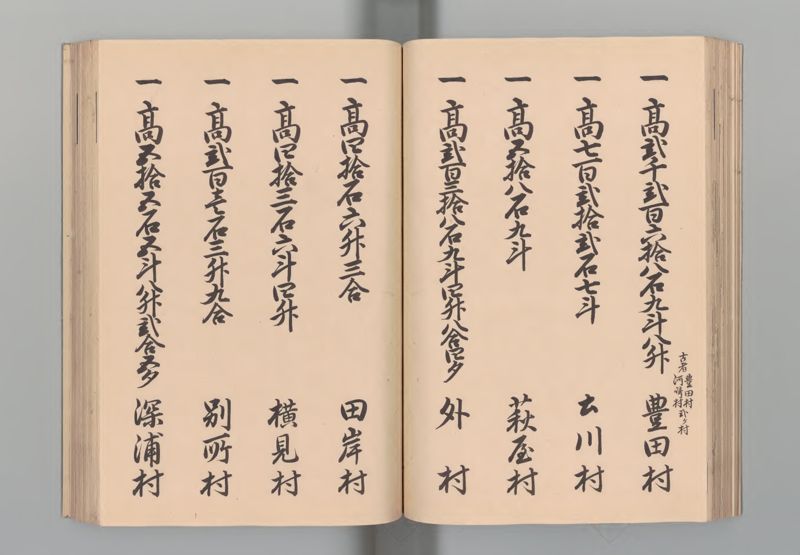 一 高弐千弐百六拾八石九斗八升 豊田村
古者 豊田村 河崎村 弐ケ村
一 高七百弐拾弐石七斗 古川村
一 高五拾八石九斗 萩屋村
一 高弐百三拾八石九斗四升八合四夕 外村
一 高四拾石六升三合 田岸村
一 高四拾三石六斗四升 横見村
一 高弐百壱石三升九合 別所村
一 高五拾五石五斗八升弐合五夕 深浦村